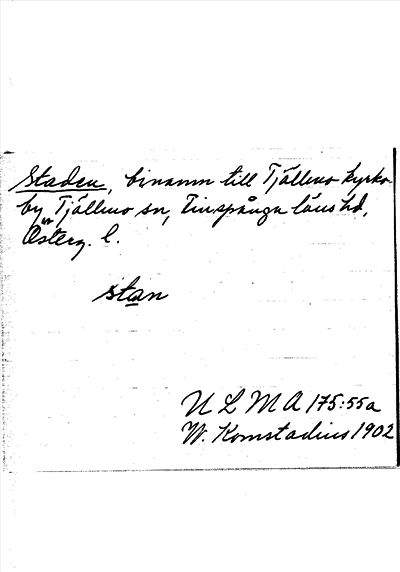 Staden, binamn till Tjällmo kyrko-
by, Tjällmo sn, Finspånga läns hd,
Österg. l.
stan
ULMA 175:55a
W. Komstadius 1902